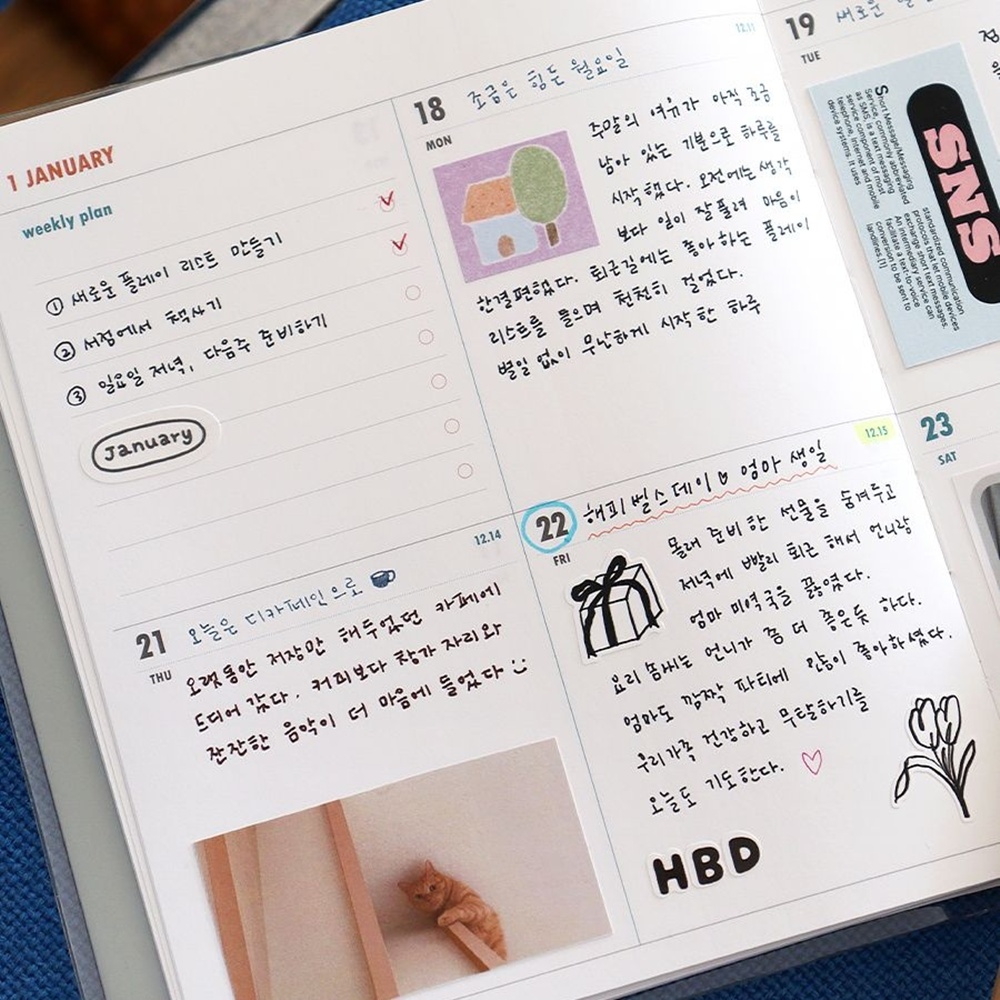 1 JANUARY
weekly plan
① 새로운 플레이 리스트 만들기
② 서점에서 책사기
③ 일요일 저녁, 다음주 준비하기
January
12.11
18 조금은 힘든 월요일
MON
주말의 여유가 아직 조금
남아 있는 기분으로 하루를
시작했다. 오전에는 생각
보다 일이 잘 풀려 마음이
한결 편했다. 퇴근길에는 좋아하는 플레이
리스트를 들으며 천천히 걸었다.
별일 없이 무난하게 시작한 하루
19 새로운
TUE
Short Message/Messaging
Service, commonly abbreviated
as SMS, is a text messaging
service component of most
telephone, Internet and mobile
device systems. It uses
standardized communication
protocols that let mobile devices
exchange short text messages.
An intermediary service can
facilitate a text-to-voice
conversion to be sent to
landlines.[1]
SNS
12.14
21 오늘은 디카페인으로
THU
오랫동안 저장만 해두었던 카페에
드디어 갔다. 커피보다 창가 자리와
잔잔한 음악이 더 마음에 들었다 :)
12.15
22 해피벌스데이 엄마 생일
FRI
몰래 준비한 선물을 숨겨두고
저녁에 빨리 퇴근 해서 언니랑
엄마 미역국을 끓였다.
요리 솜씨는 언니가 좀 더 좋은듯 하다.
엄마도 깜짝 파티에 좋아하셨다.
우리가족 건강하고 무탈하기를
오늘도 기도한다. ♡
HBD
23
SAT